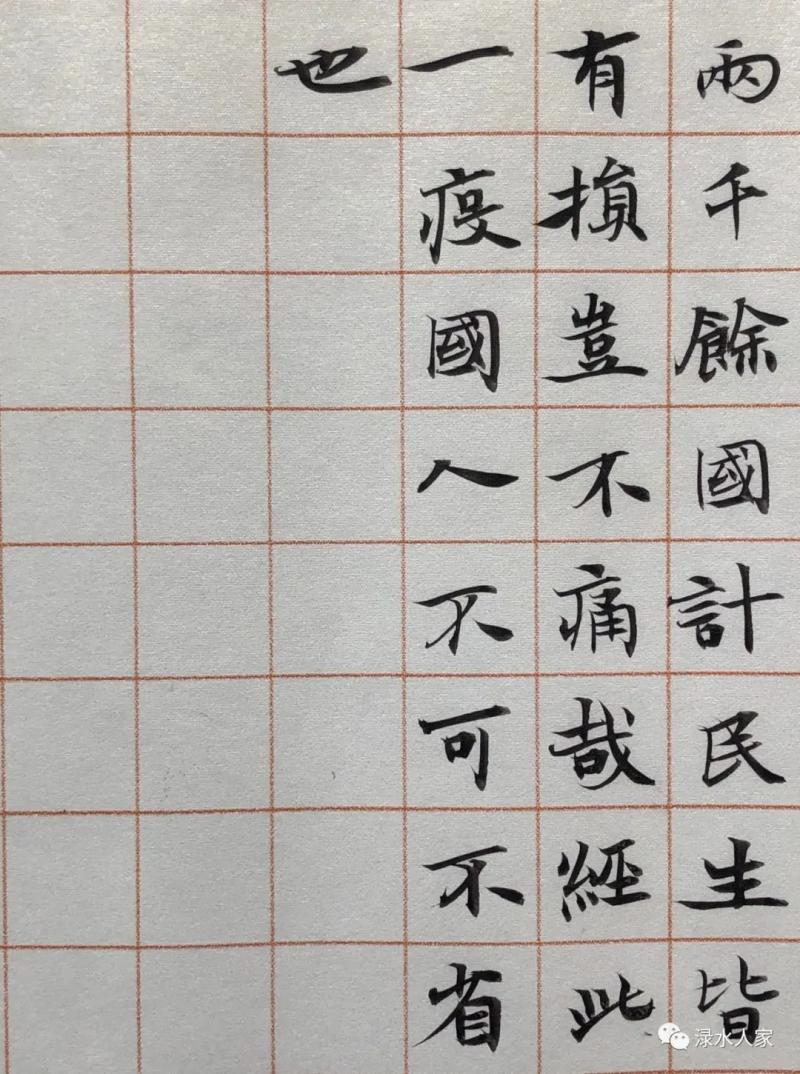 兩千餘國計民生皆
有損豈不痛哉經此
一疫國人不可不省
也
渌水人家